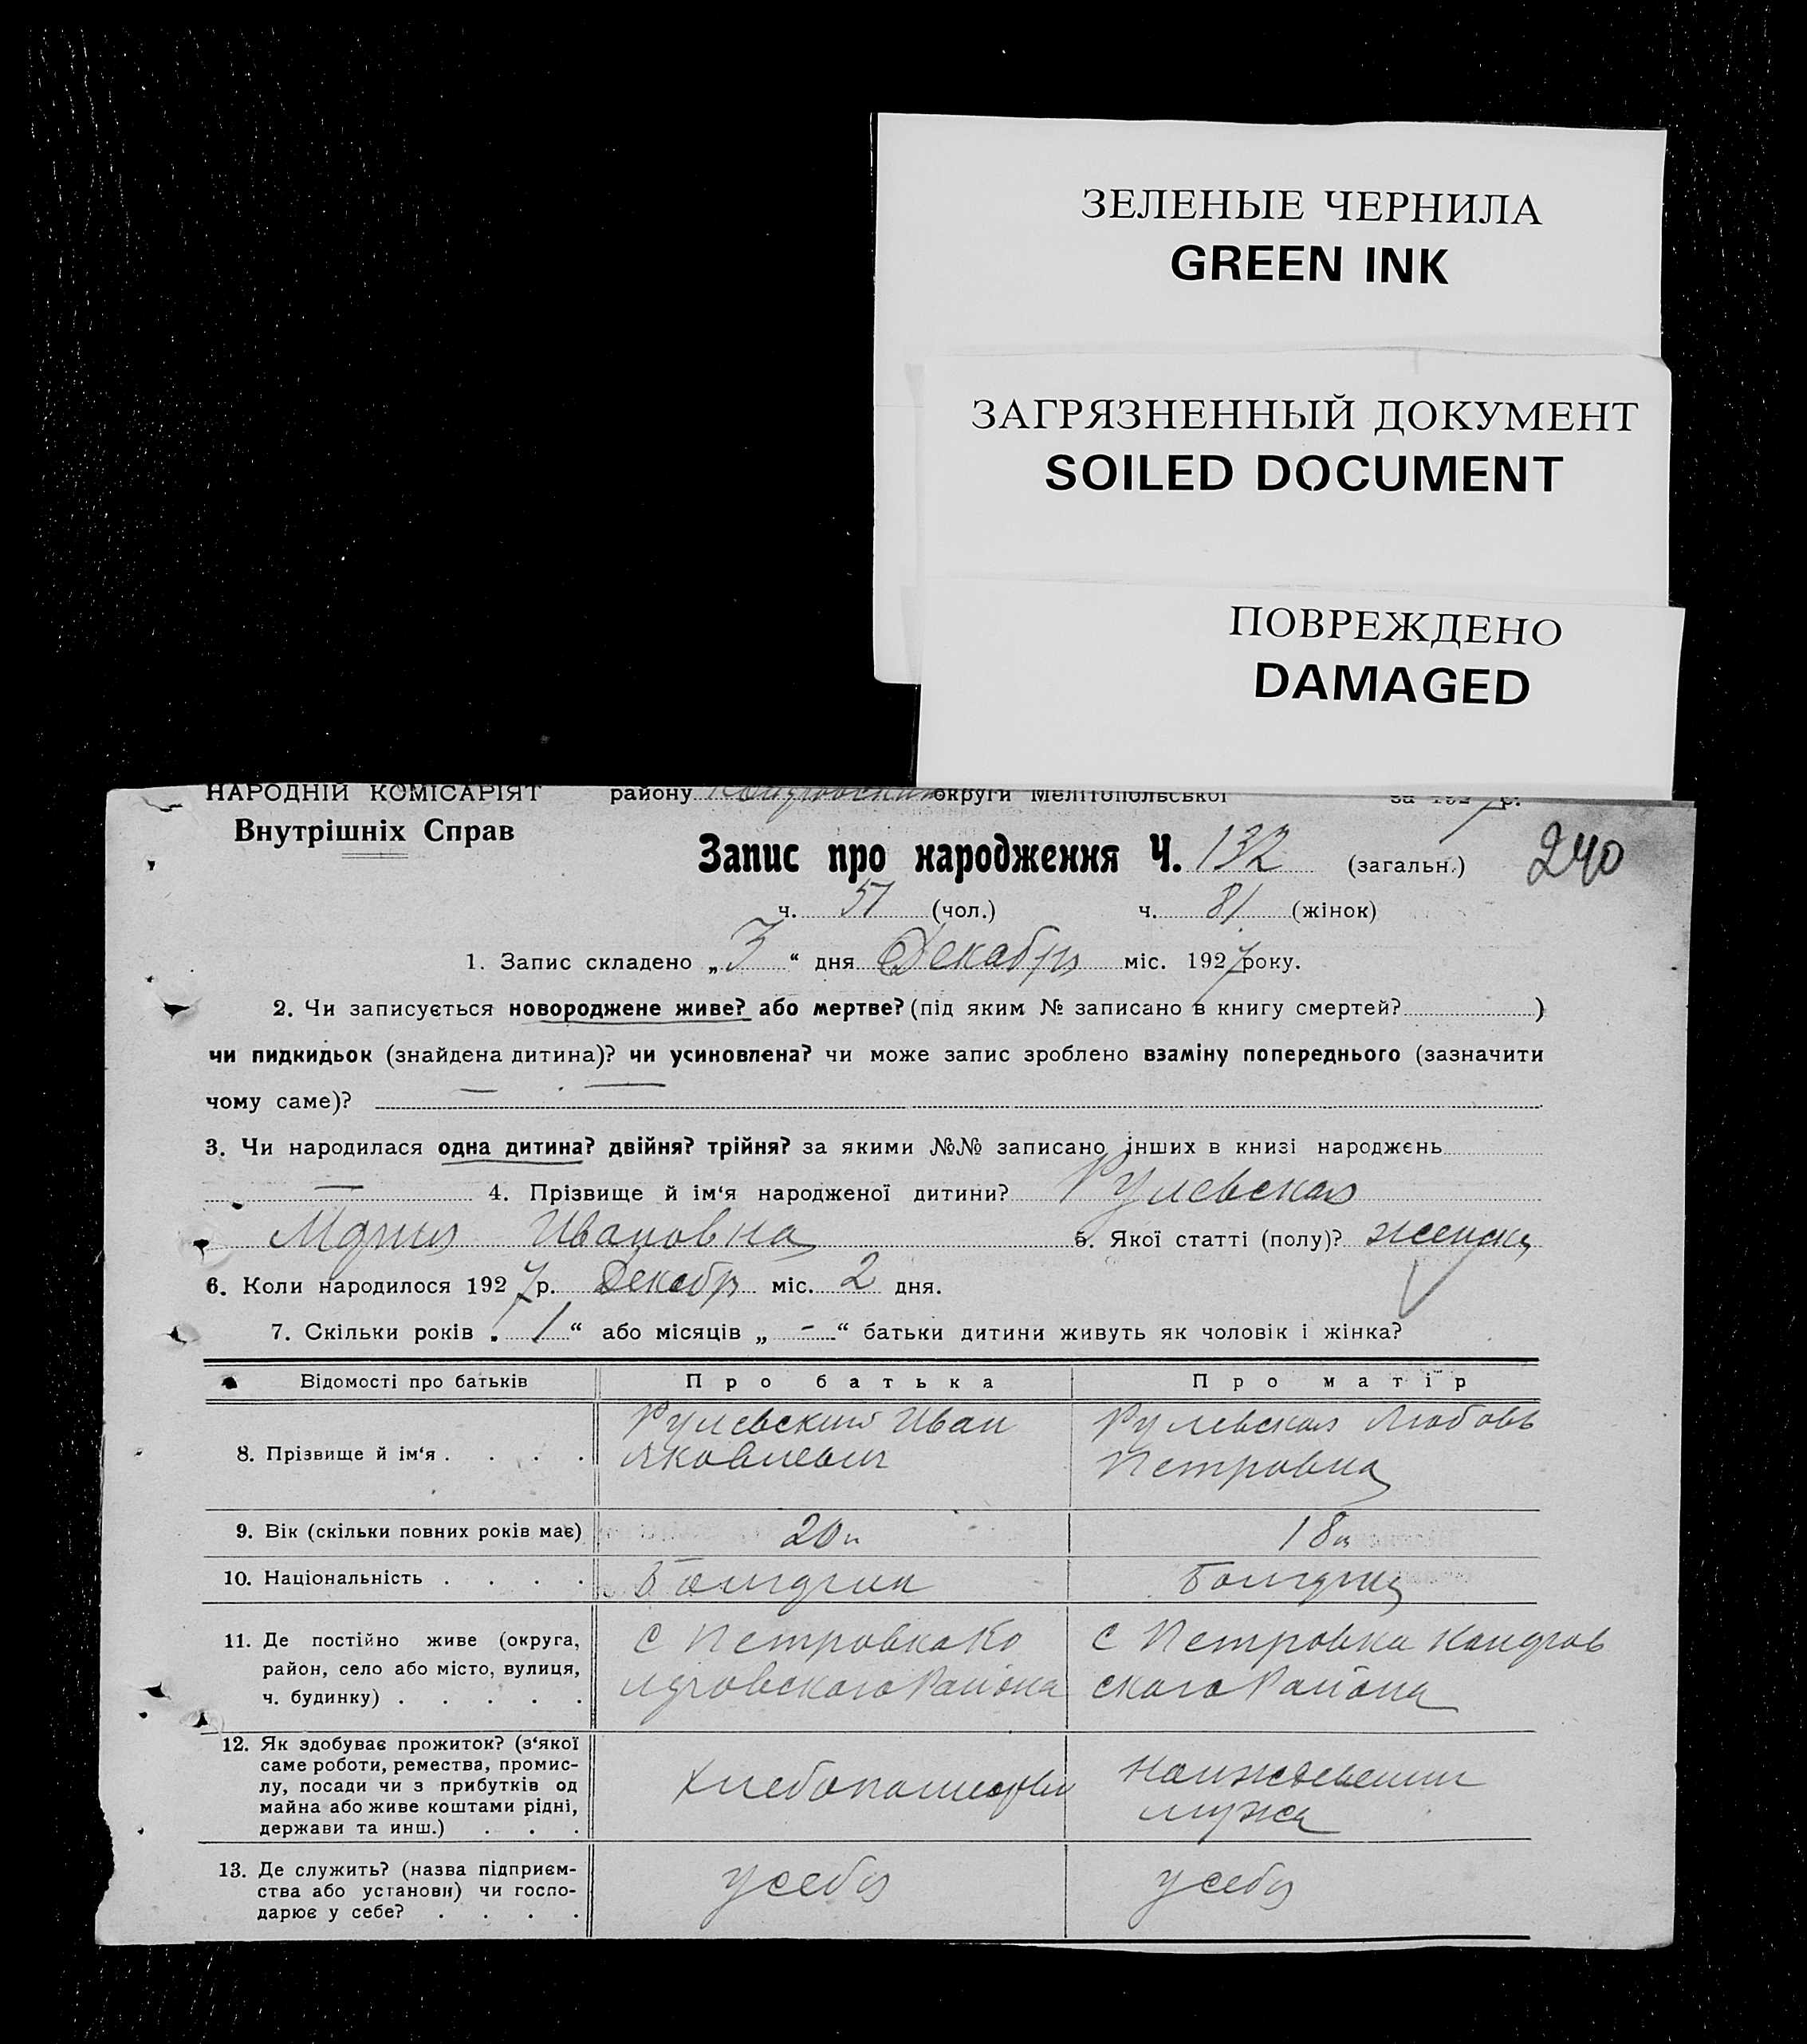 ЗЕЛЕНЫЕ ЧЕРНИЛА
GREEN INK
ЗАГРЯЗНЕННЫЙ ДОКУМЕНТ
SOILED DOCUMENT
ПОВРЕЖДЕНО
DAMAGED
НАРОДНІЙ КОМІСАРІЯТ району округи Мелітопольської за 1927 р.
Внутрішніх Справ
Запис про народження Ч. 132 (загальн.) 240
ч. 51 (чол.) ч. 81 (жінок)
1. Запис складено „3“ дня Декабря міс. 1927 року.
2. Чи записується новороджене живе? або мертве? (під яким № записано в книгу смертей? )
чи пидкидьок (знайдена дитина)? чи усиновлена? чи може запис зроблено взаміну попереднього (зазначити
чому саме)?
3. Чи народилася одна дитина? двійня? трійня? за якими №№ записано інших в книзі народжєнь
— 4. Прізвище й ім‘я народженої дитини? Рулевская
Мария Ивановна 5. Якої статті (полу)? женск
6. Коли народилося 1927 р. Декабр міс. 2 дня.
7. Скільки років „1“ або місяців „-“ батьки дитини живуть як чоловік і жінка?
Відомості про батьків Про батька Про матір
8. Прізвище й ім‘я . . . .
Рулевский Иван
Яковлевич
Рулевская Любовь
Петровна
9. Вік (скільки повних років має) 20 л 18 л
10. Національність . . . . Болгарин Болгарка
11. Де постійно живе (округа,
район, село або місто, вулиця,
ч. будинку) . . . . .
С Петровка Ко
ларовского Района
С Петровка Коларов
ского Района
12. Як здобуває прожиток? (з‘якої
саме роботи, ремества, промис-
лу, посади чи з прибутків од
майна або живе коштами рідні,
держави та инш.) . . .
Хлебопашеством
На иждевении
мужа
13. Де служить? (назва підприєм-
ства або установи) чи госпо-
дарює у себе? . . . .
у себя
у себя